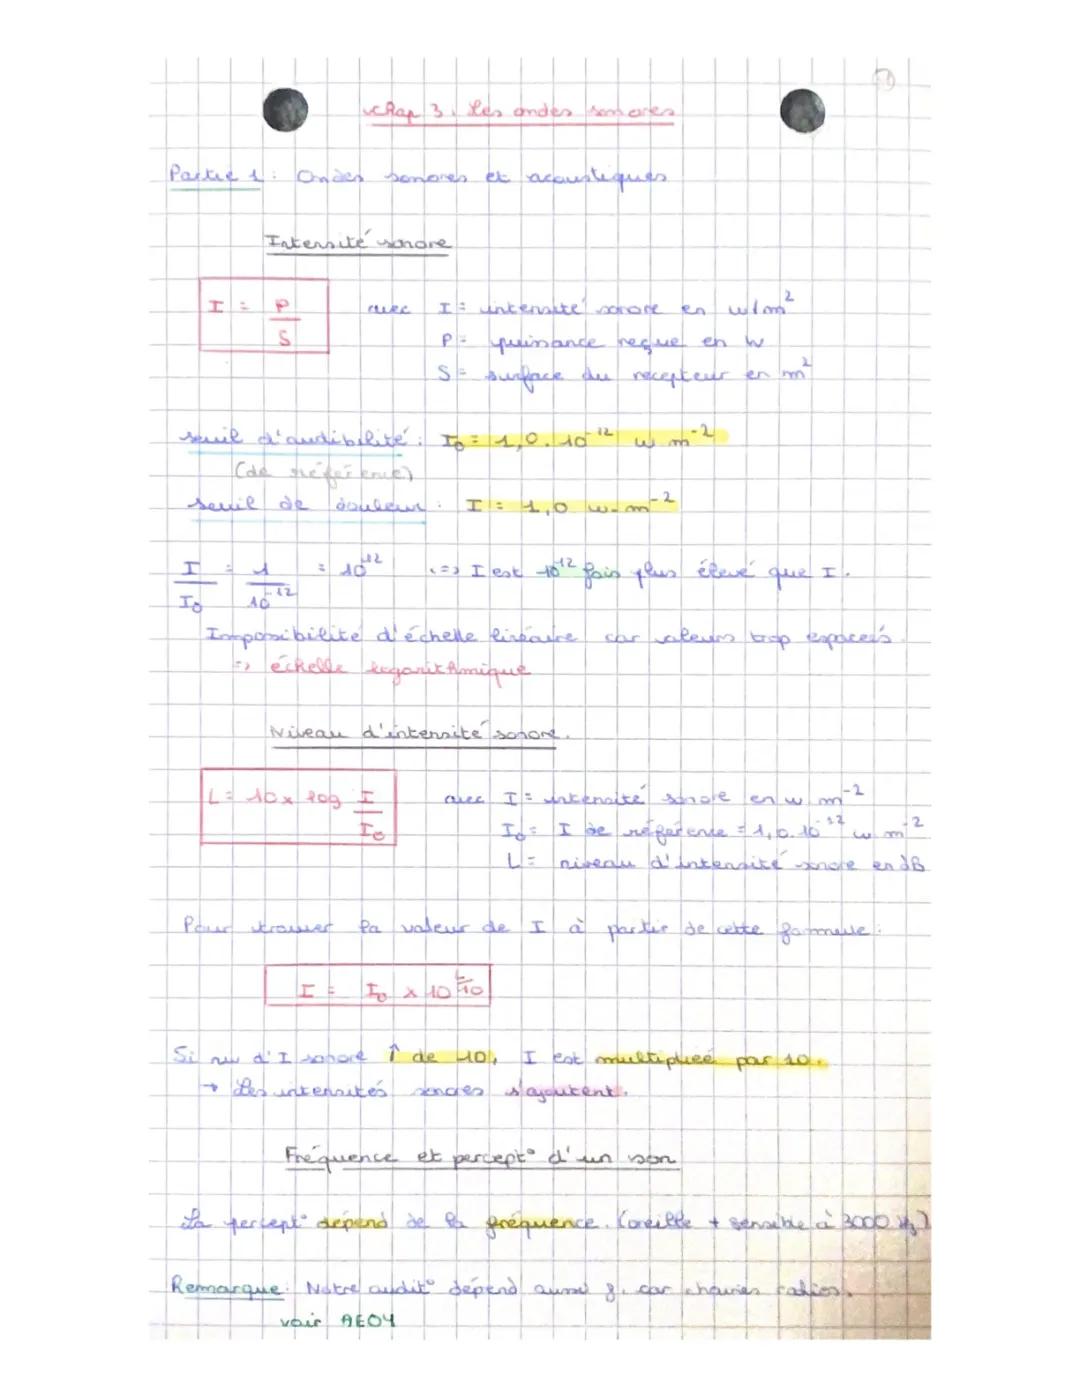 Chap 3 : Les ondes sonores
Partie 1 : Ondes sonores et acoustiques
Intensité sonore
I = P/S avec I = intensité sonore en w/m²
P = puissance reçue en W
S = surface du recepteur en m²
seuil d'audibilité : I₀ = 1,0.10⁻¹² w.m⁻²
(de référence)
seuil de douleur : I = 1,0 w.m⁻²
I/I₀ = 1/10⁻¹² = 10¹² <=> I est 10¹² fois plus élevé que I.
Impossibilité d'échelle linéaire car valeurs trop espacées.
=> échelle logarithmique
Niveau d'intensité sonore.
L = 10 x log I/I₀ avec I = intensité sonore en w m⁻²
I₀ = I de référence = 1,0.10⁻¹² w m⁻²
L = niveau d'intensité sonore en dB
Pour trouver la valeur de I à partir de cette formule :
I = I₀ x 10^L/10
Si niv d'I sonore ↑ de 10, I est multipliée par 10.
→ Les intensités sonores s'ajoutent.
Fréquence et percept° d'un son
La percept° dépend de la fréquence. (oreille + sensible à 3000 Hz)
Remarque : Notre audit° dépend aussi f. car
voir AE04